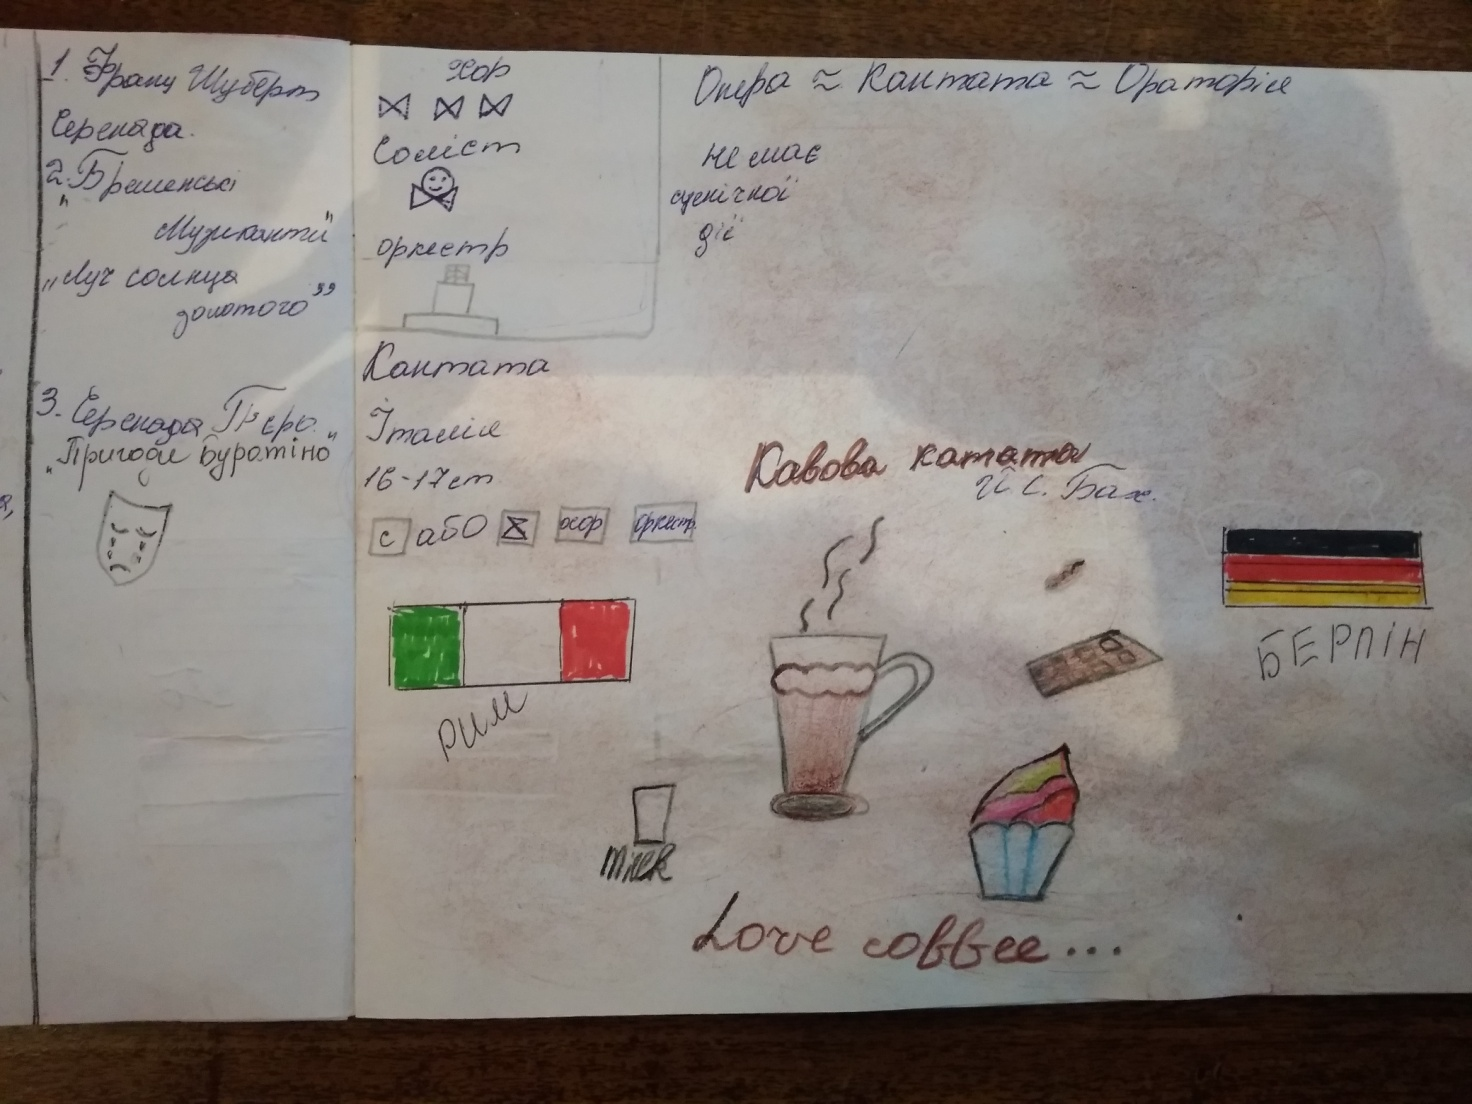 1. Франц Шуберт
Серенада.
2. Бременські
"Музиканти"
"Луч солнца
золотого"
3. Серенада П'єро.
"Пригоди Буратіно"
Хор
Соліст
оркестр
Опера ≈ Кантата ≈ Ораторія
не має
сценічної
дії
Кантата
Італія
16-17ст
с або хор оркестр
Кавова катата
Й С. Бах.
РИМ
БЕРЛІН
milk
Love coffee...